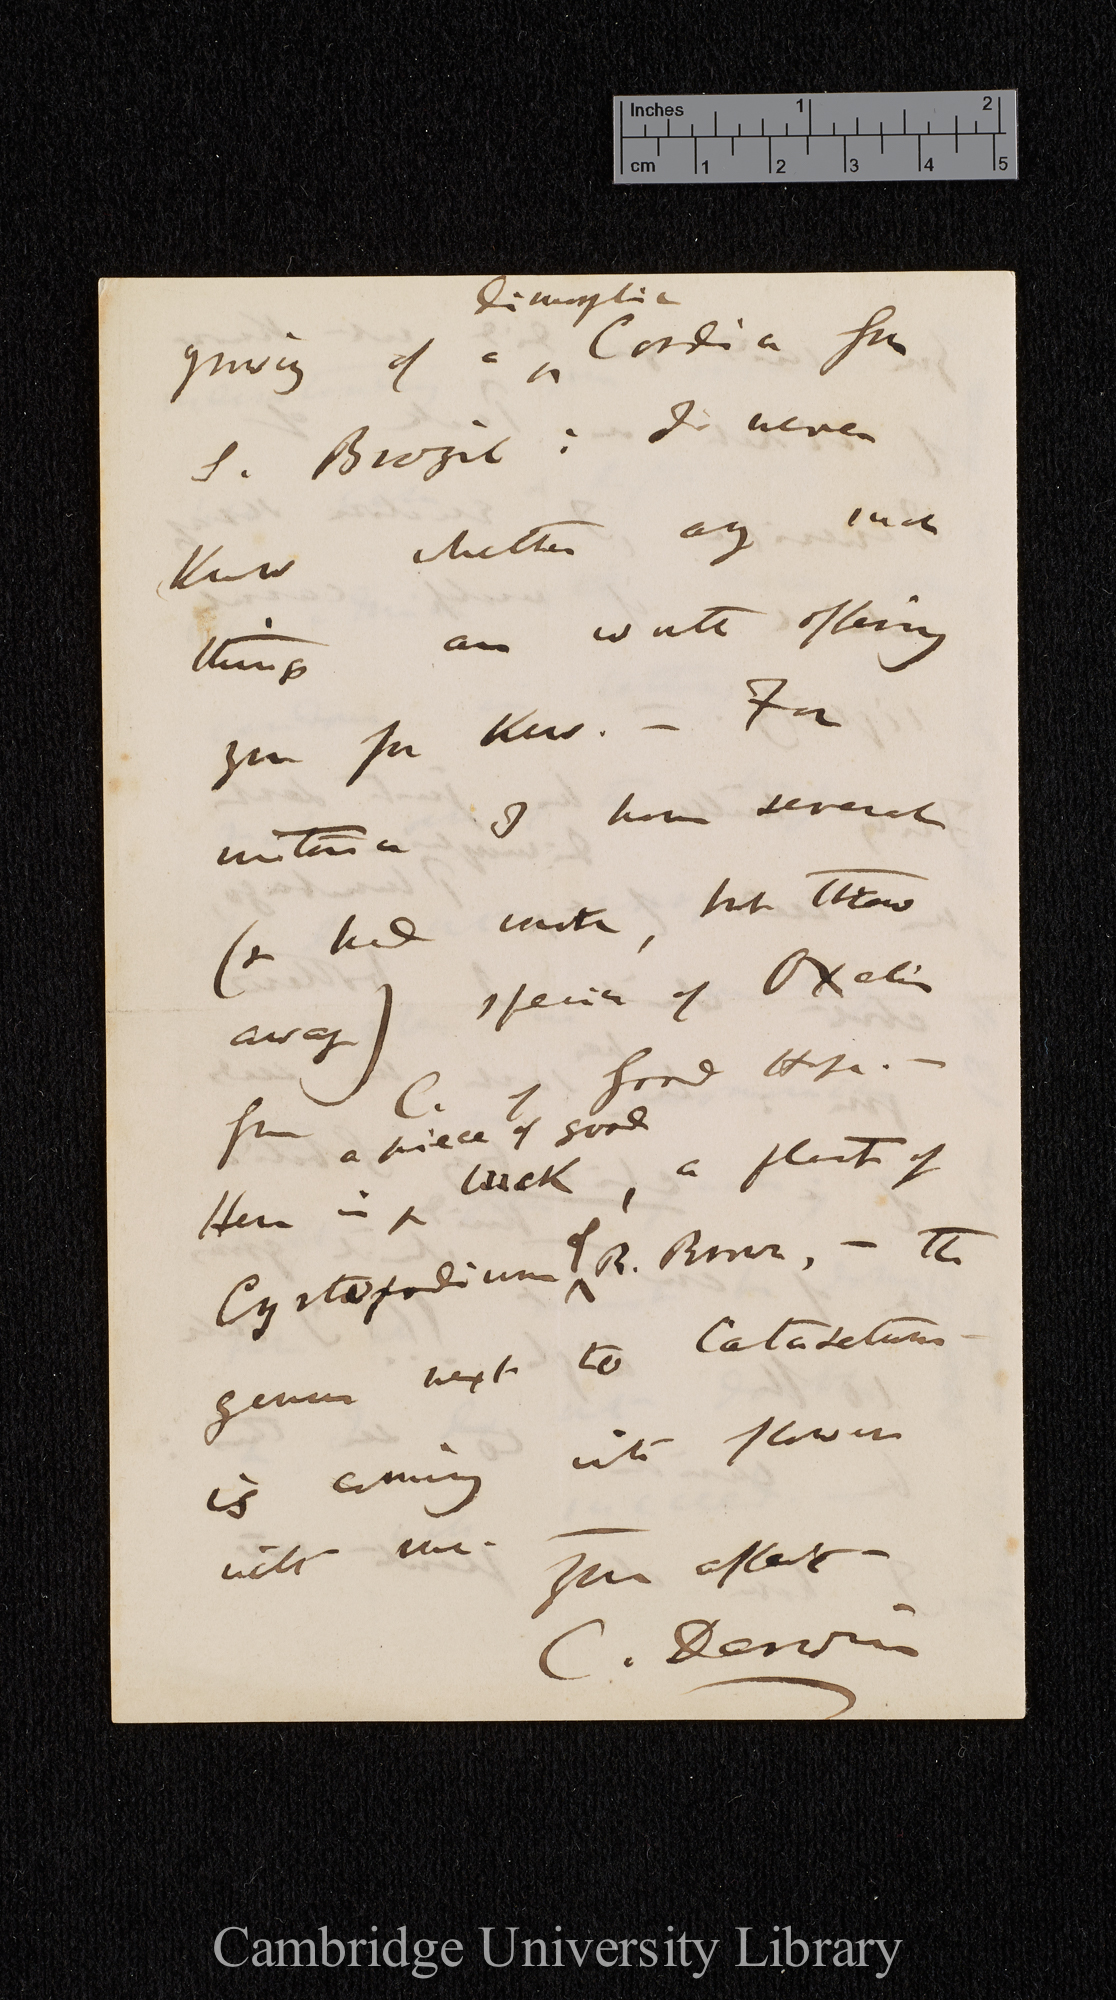 Inches 1 2
cm 1 2 3 4 5
dimorphic
growing of a ^ Cordia from
S. Brazil : I never
know whether any such
things are worth offering
you for Kew. — For
instance I have several
(& had more, but threw
away) species of Oxalis
from C. of Good Hope. —
a piece of good
Here is ^ luck, a plant of
Cyrtopodium ^of R. Brown, — the
genus next to Catasetum —
is coming into flower
with me.
Yours affect —
C. Darwin
Cambridge University Library